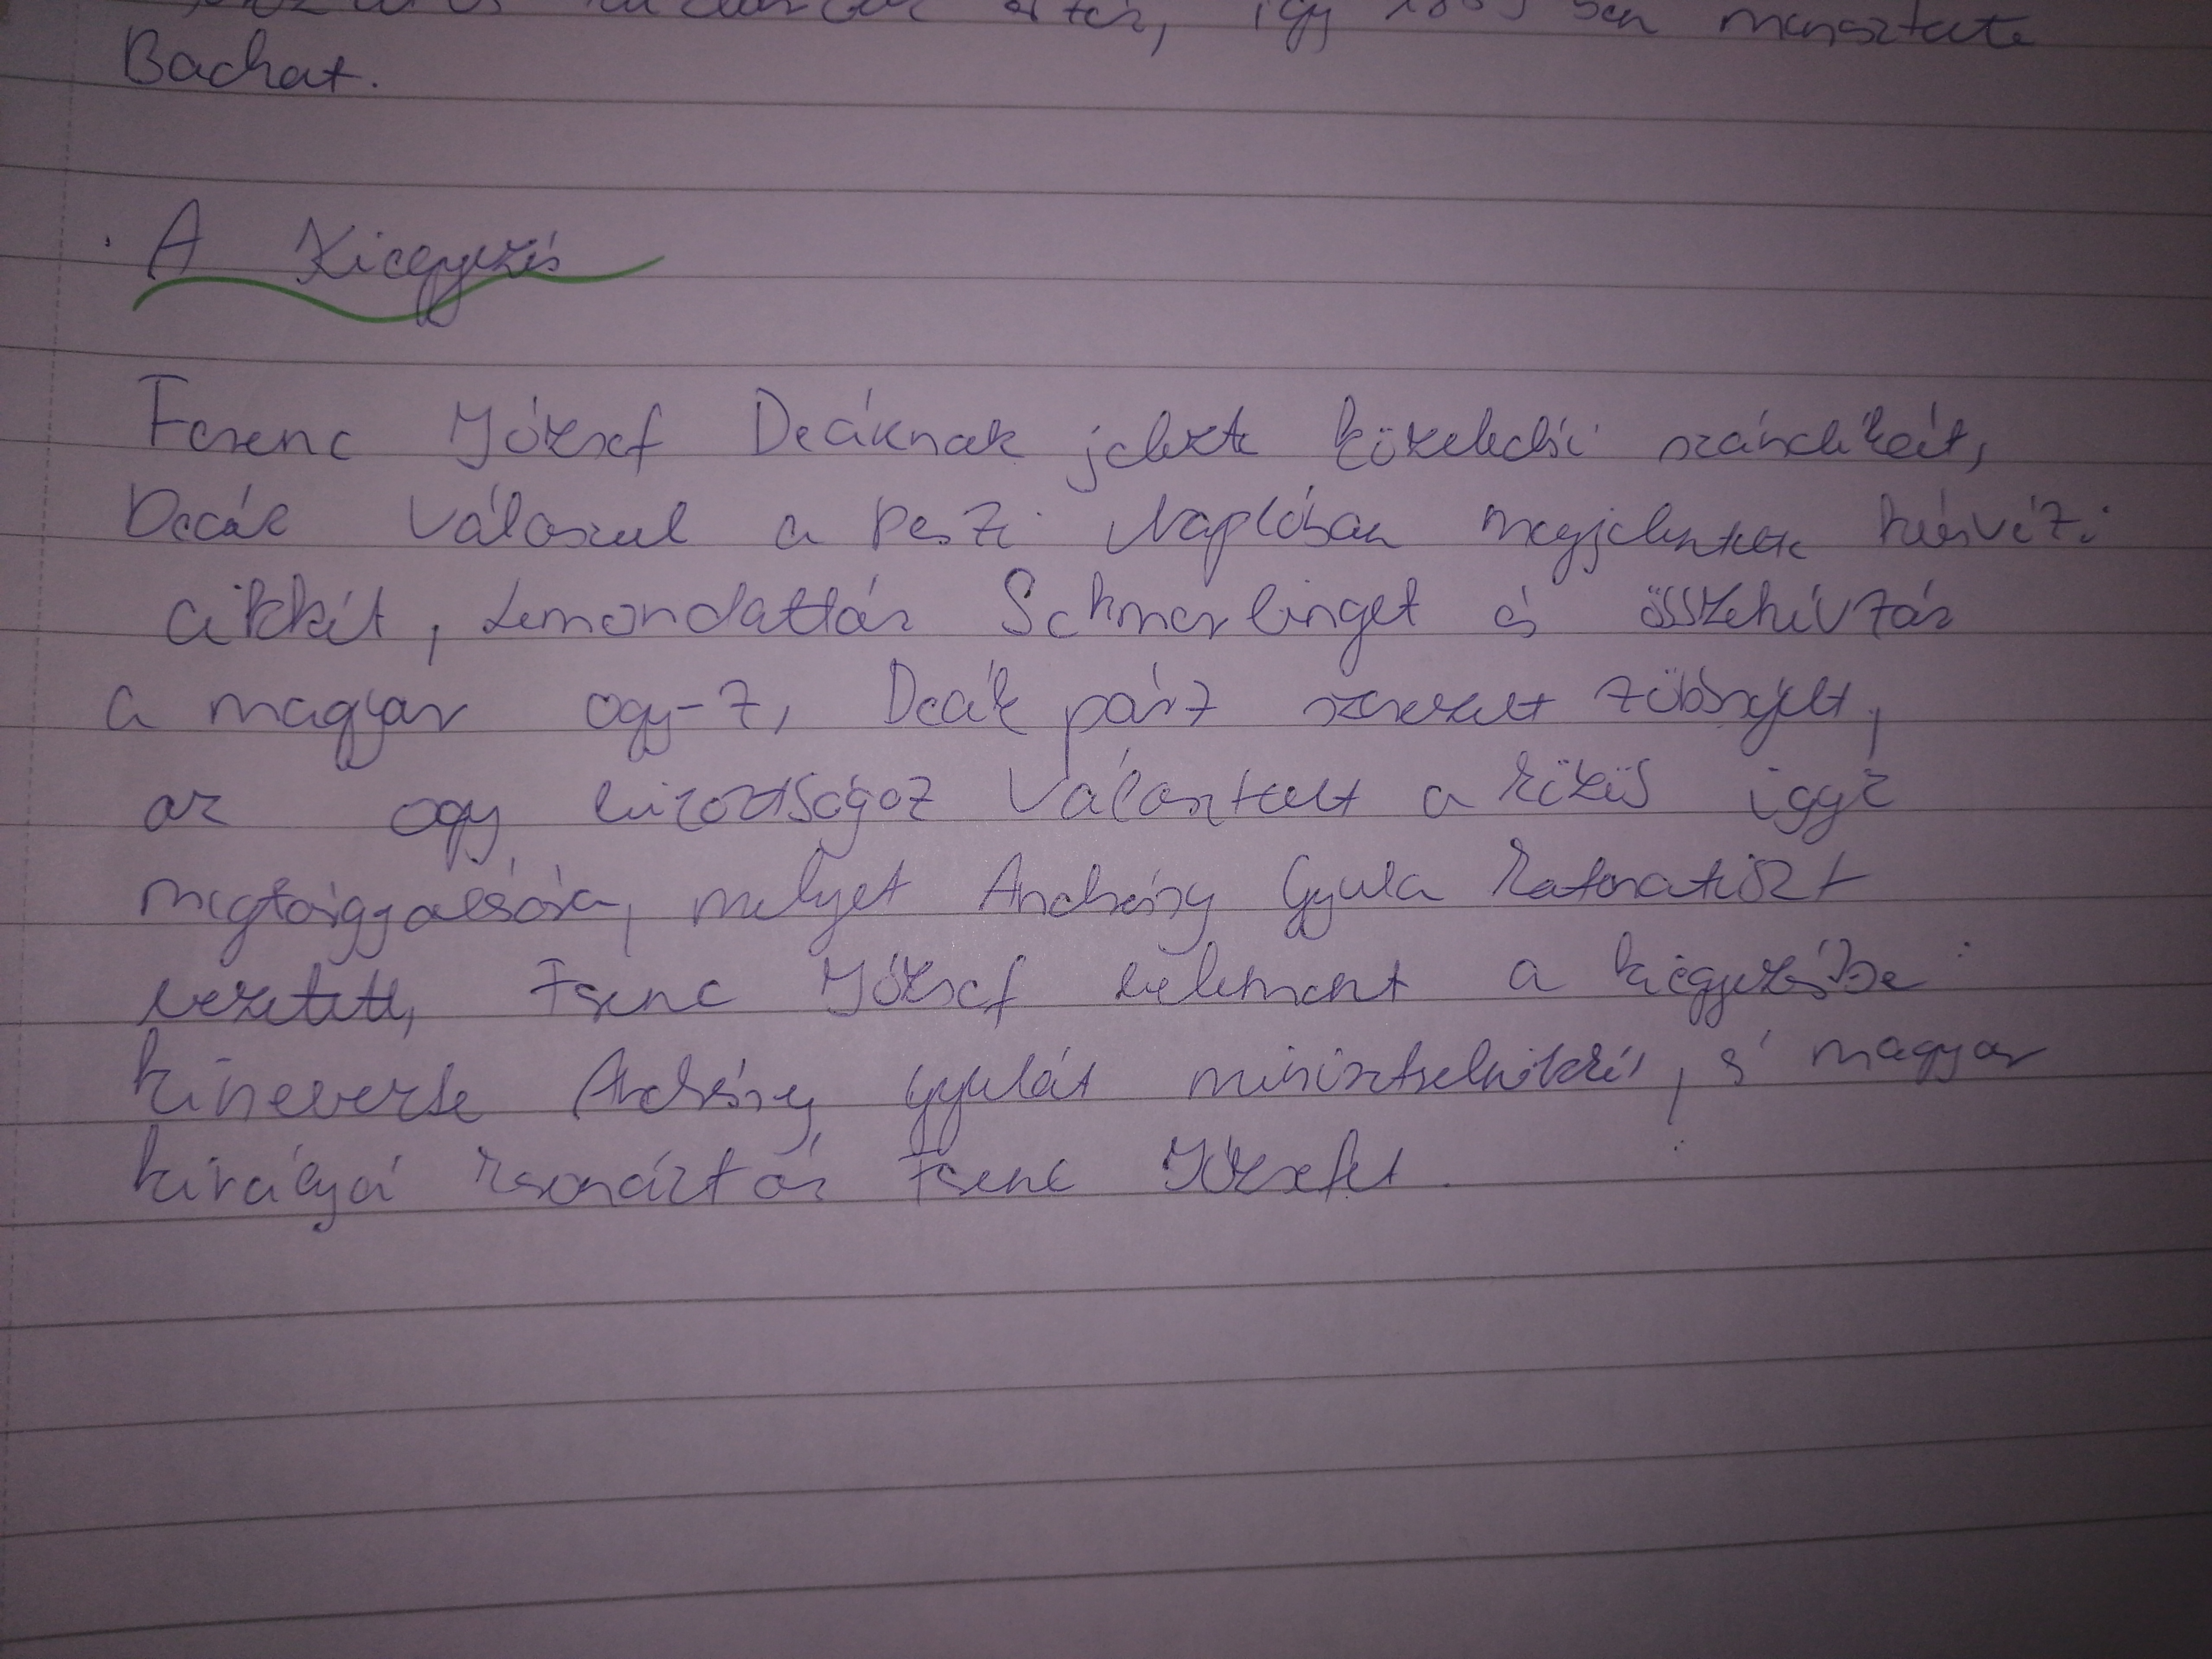 így 1859 ben menesztette
Bachat.
A Kiegyezés
Ferenc József Deáknak jelezte közeledési szándékát,
Deák válaszul a Pesti Naplóban megjelentette húsvéti
cikkét, Lemondatták Schmerlinget és összehívták
a magyar ogy-t, Deák párt szerzett többséget,
az ogy bizottságot választott a közös ügyek
megtárgyalására, melyet Andrássy Gyula
vezetett, Ferenc József belement a kiegyezésbe
kinevezte Andrássy Gyulát miniszterelnökké, s magyar
királyá koronázták Ferenc Józsefet.